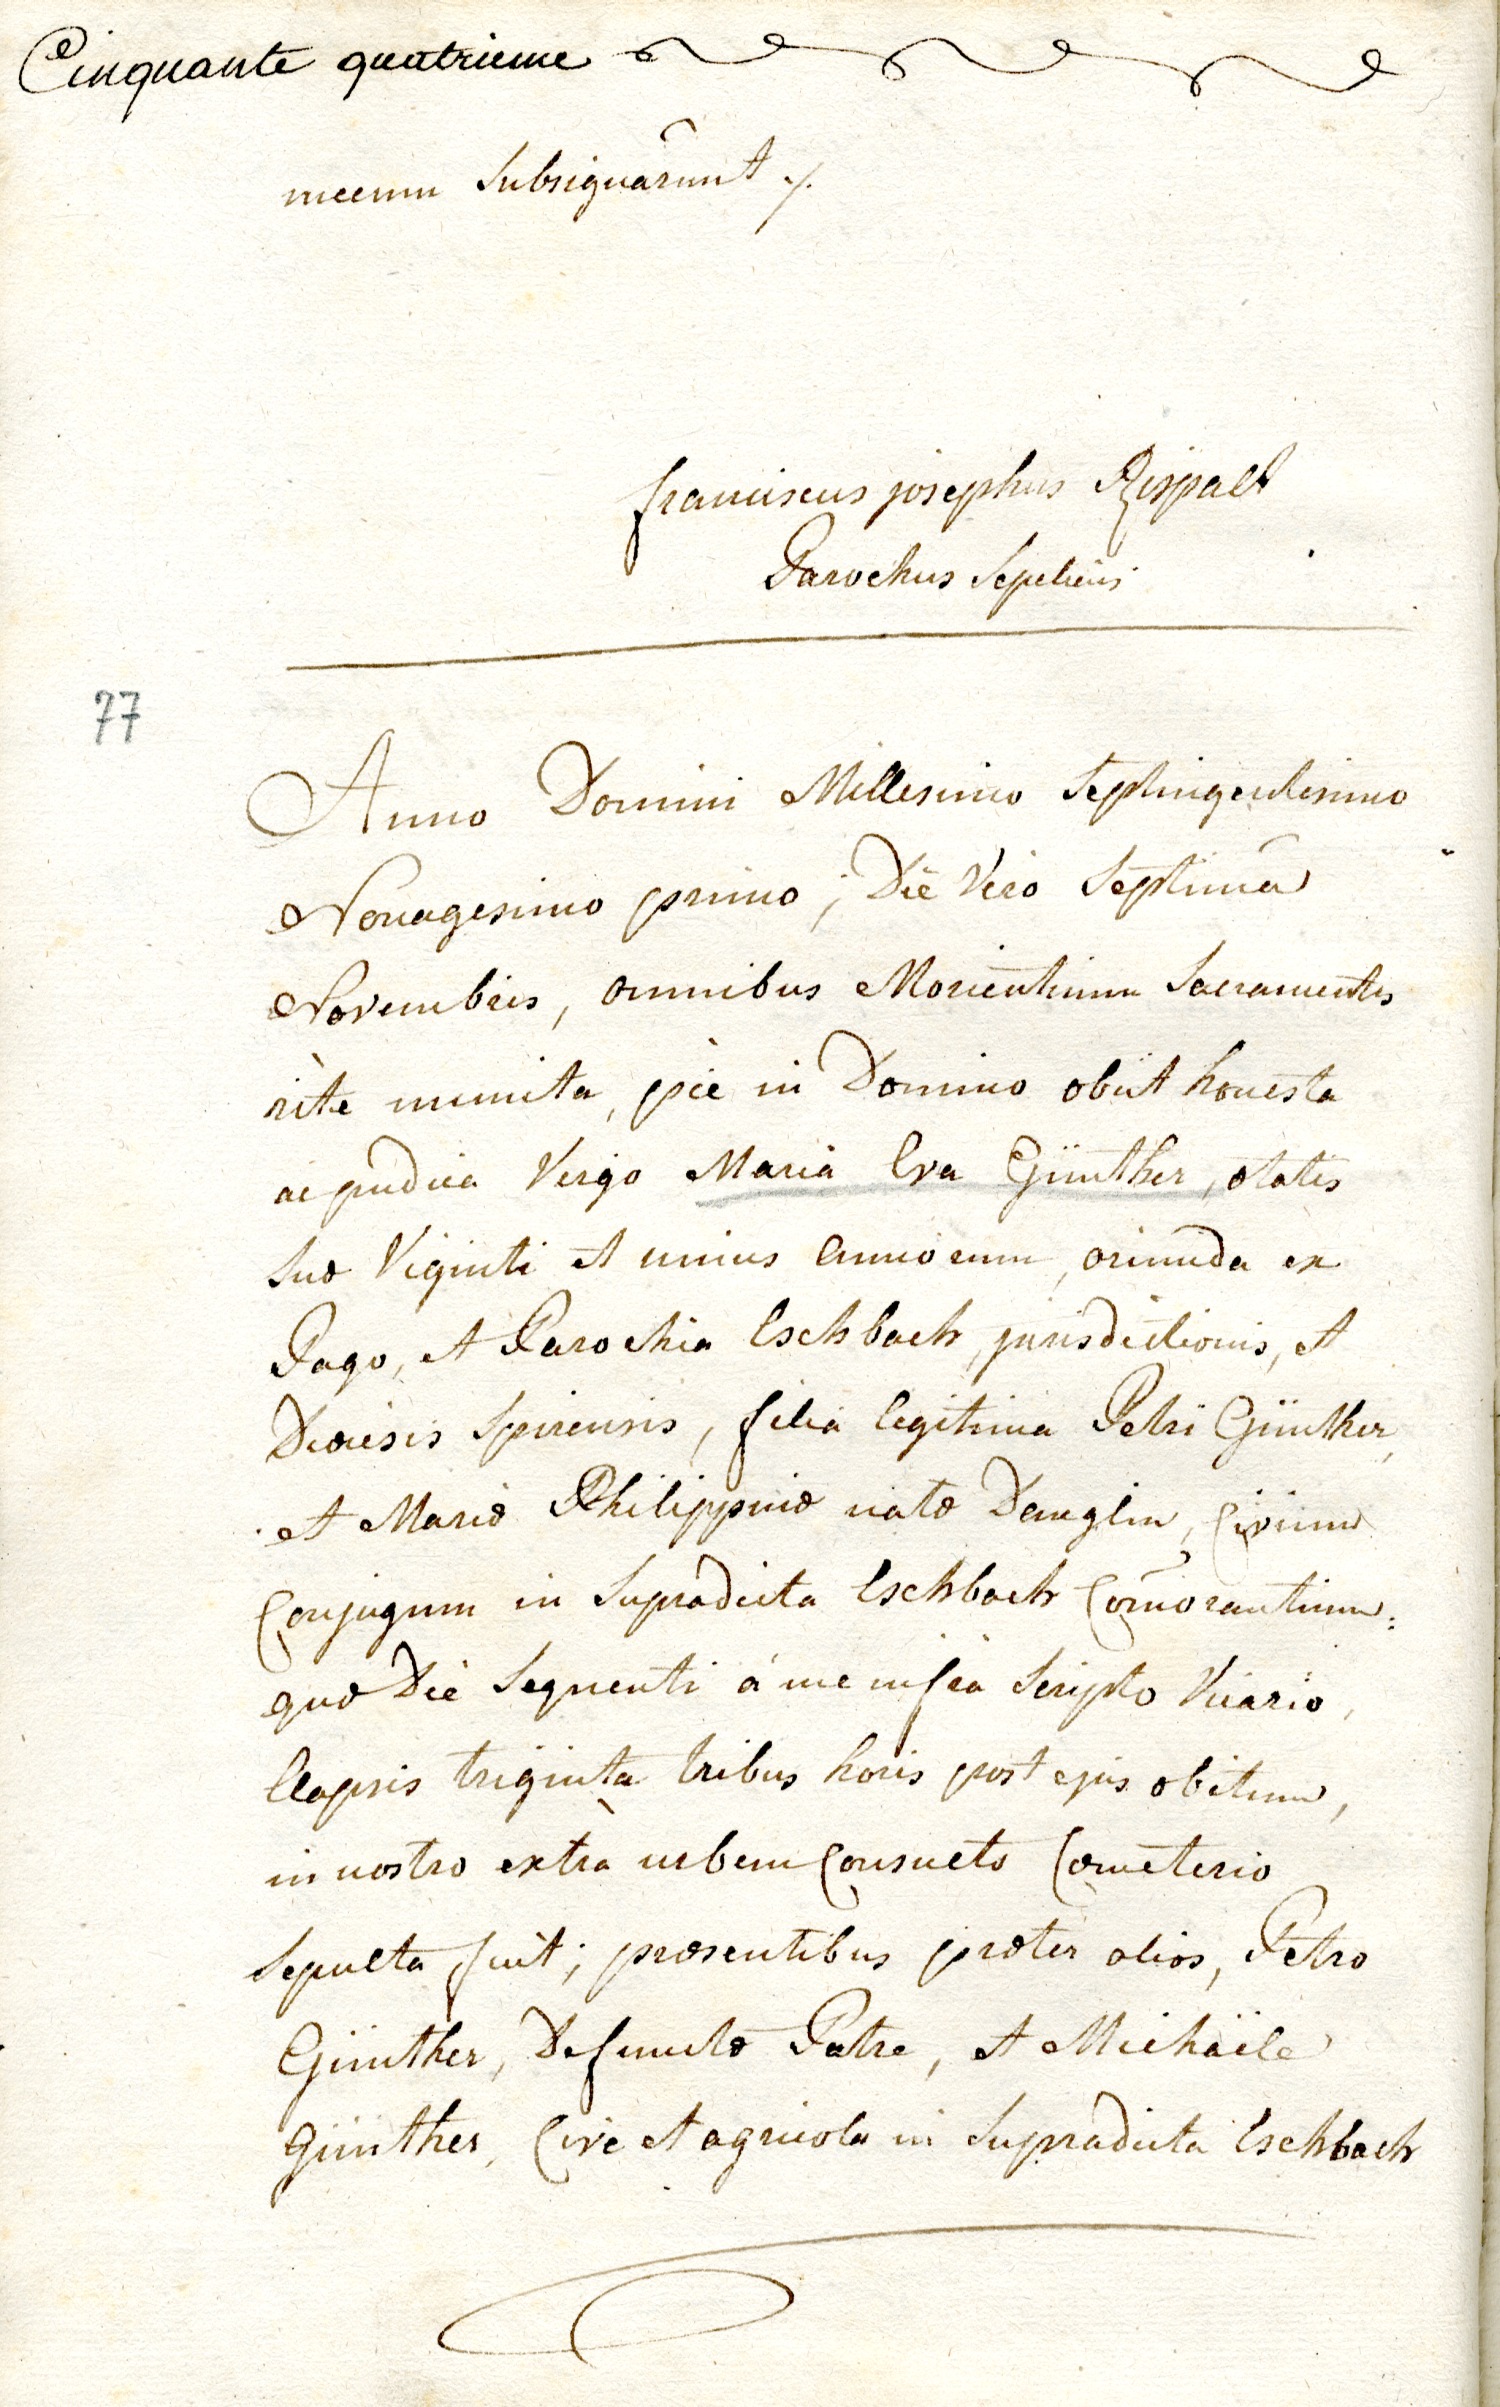 Cinquante quatrieme
mecum Subsignarunt ./.
franciscus josephus Rispalt
Parochus Sepeliens
77
Anno Domini Millesimo Septingentesimo
Nonagesimo primo, Die Vero Septimâ
Novembris, omnibus Morientium Sacramentis
ritè munita, piè in Domino obiit honesta
ac pudica Virgo Maria Eva Günther, ætatis
suæ Viginti et unius Annorum, oriunda ex
Pago, et Parochia Eschbach, jurisdictionis, et
Diœcesis Spirensis, filia legitima Petri Günther,
et Mariæ Philippinæ natæ Denglin, Civium
Conjugum in Supradicta Eschbach Com̄orantium:
quæ Die Sequenti à me infra Scripto Vicario,
Elapsis triginta tribus horis post ejus obitum,
in nostro extrà urbem Consueto Cœmeterio
Sepulta fuit; præsentibus præter alios, Petro
Günther, Defunctæ Patre, et Michäele
Günther, Cive et agricola in Supradicta Eschbach